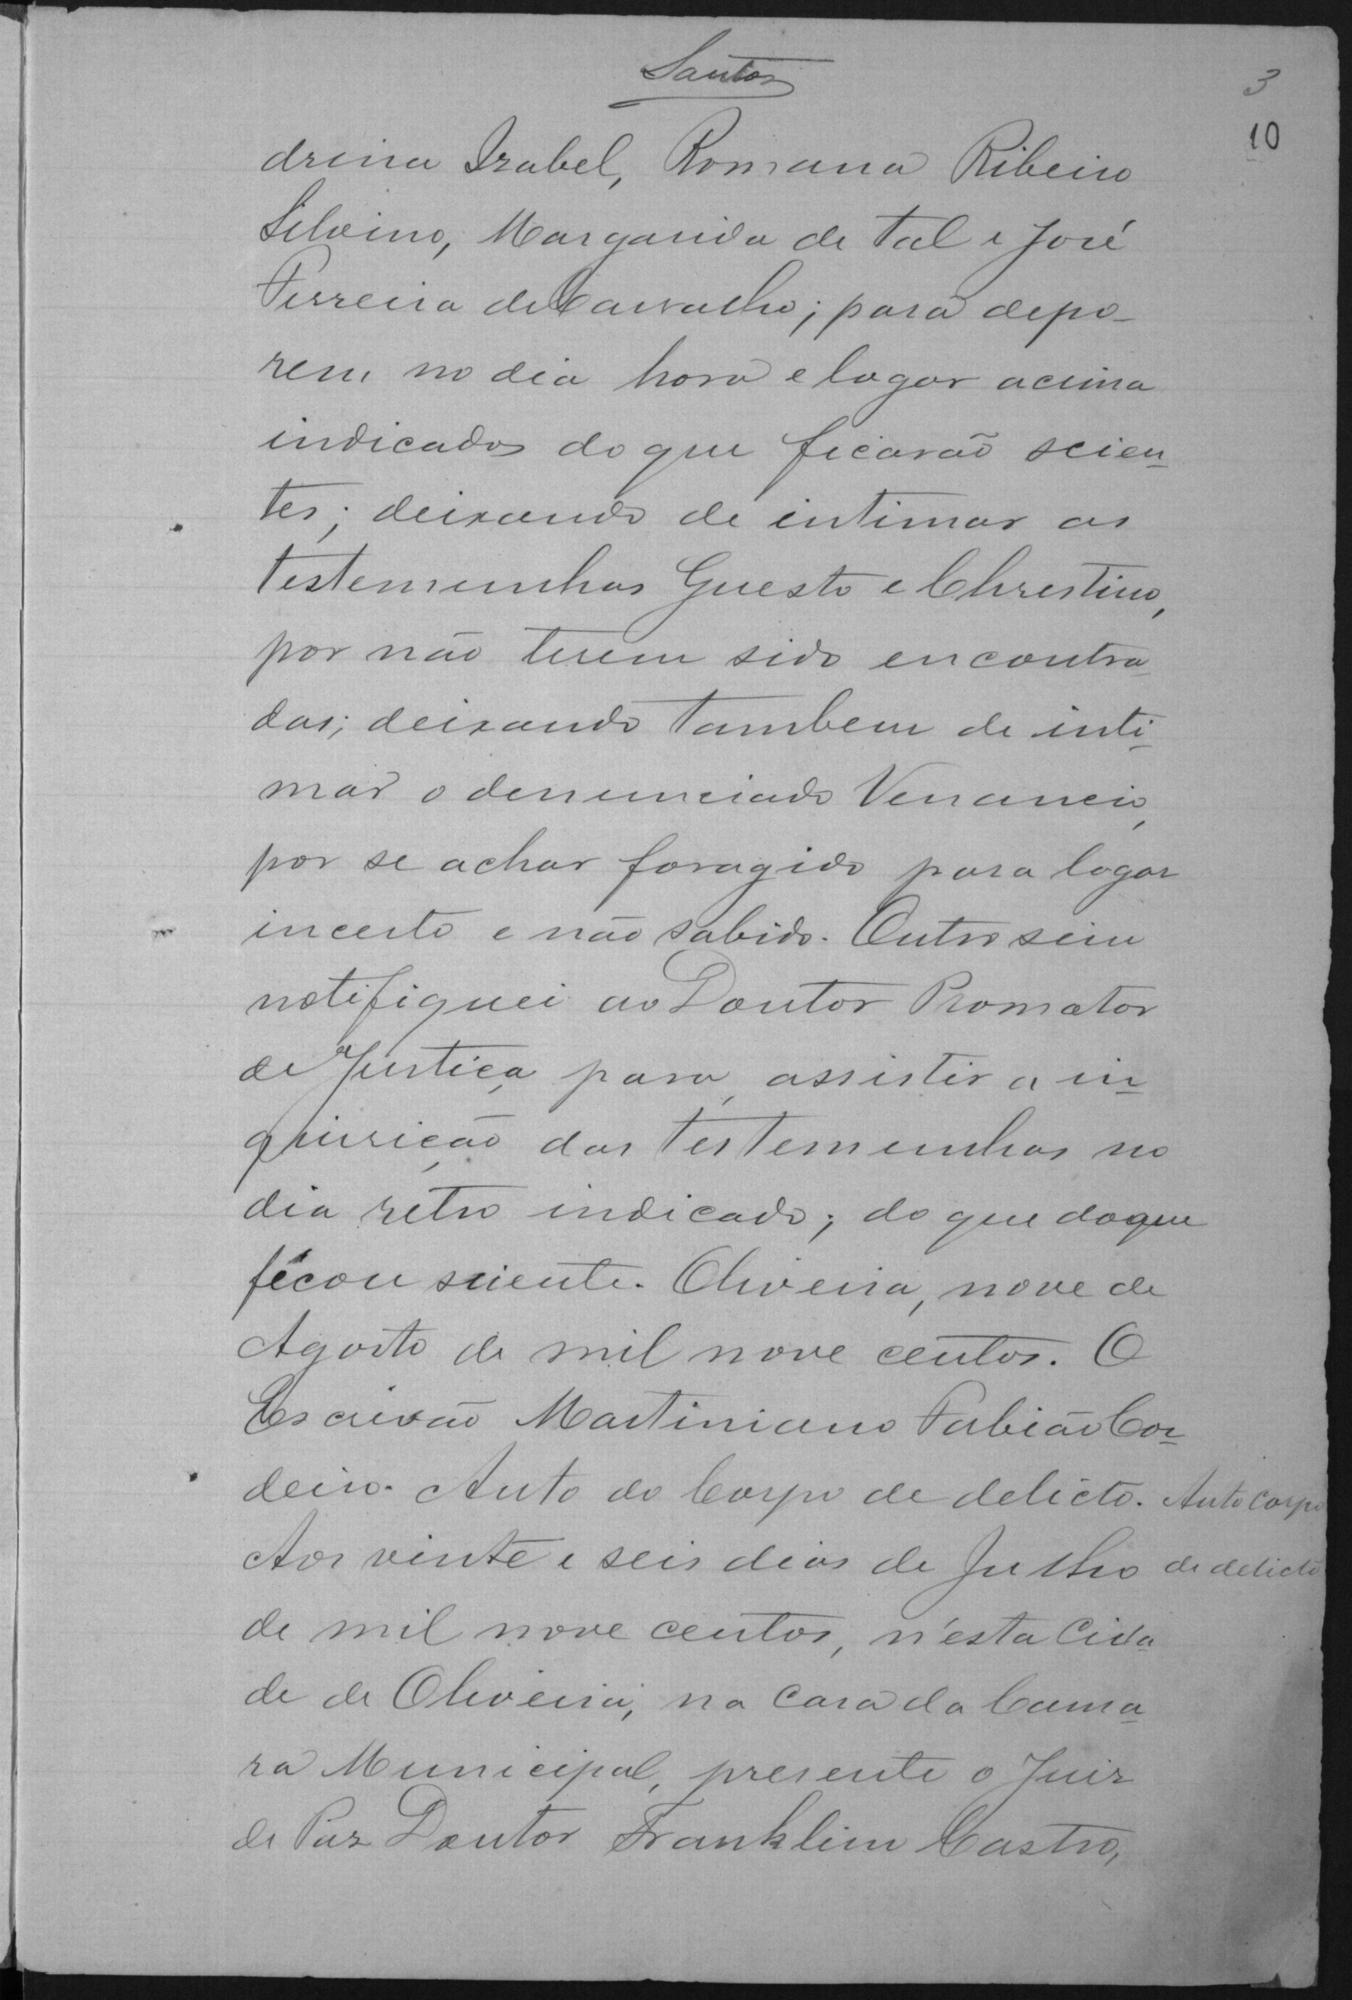 Santos
3
10
drina Izabel, Romana Ribeiro
Silvino, Margarida de tal e José
Ferreira de Carvalho; para depo-
rem no dia hora e logar acima
indicados do que ficarão scien-
tes; deixando de intimar as
testemunhas Guesto e Chrestino,
por não terem sido encontra-
das; deixando tambem de inti-
mar o denunciado Venancio,
por se achar foragido para logar
incerto e não sabido. Outro sim
notifiquei ao Doutor Promotor
de Justiça para, assistir a in-
quirição das testemunhas no
dia retro indicado; do que do que
ficou sciente. Oliveira, nove de
Agosto de mil nove centos. O
Escrivão Martiniano Fabião Cor-
deiro. Auto do Corpo de delicto. Auto Corpo
Aos vinte e seis dias de Julho de delicto
de mil nove centos, n'esta Cida-
de de Oliveira, na Casa da Cama-
ra Municipal, presente o Juiz
de Paz Doutor Franklim Castro,